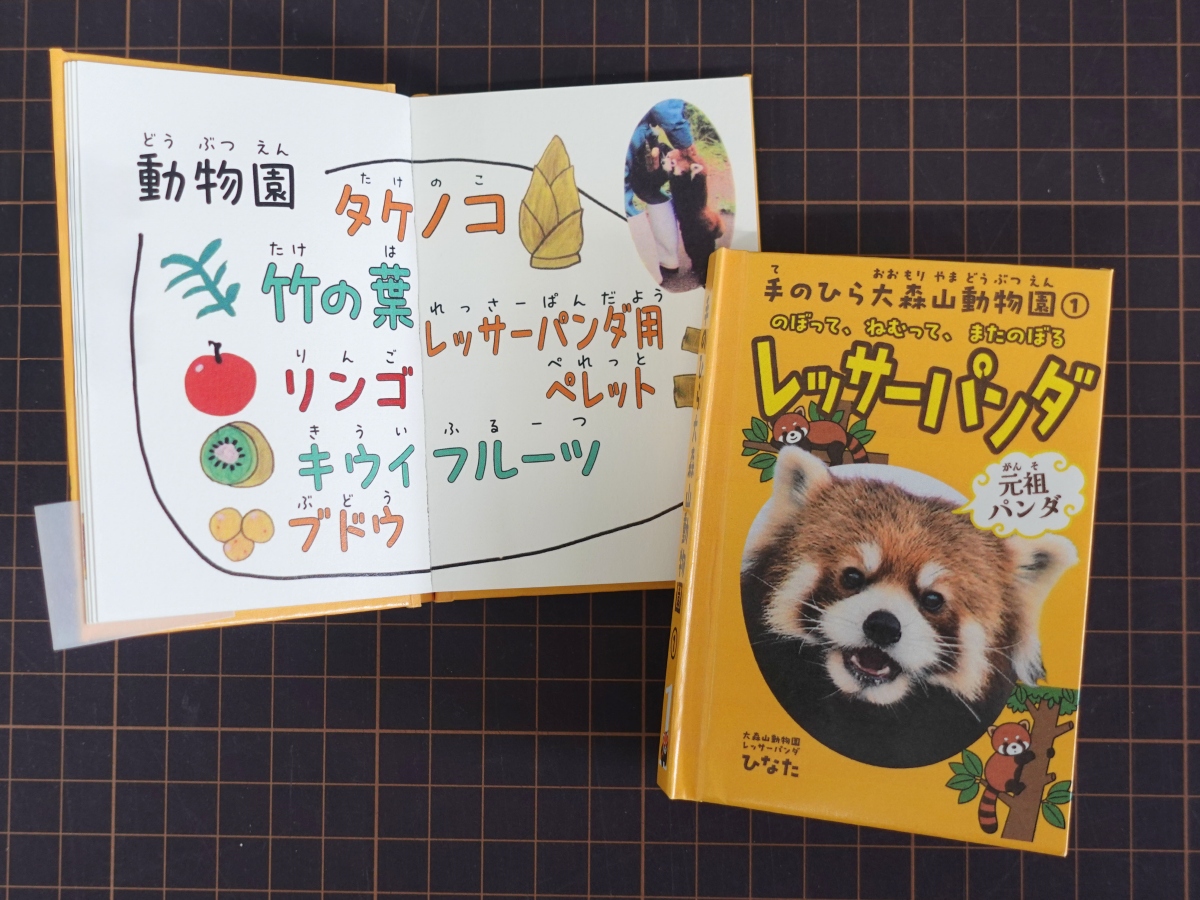 どうぶつえん
動物園
たけのこ
タケノコ
たけ は
竹の葉
れっさーぱんだよう
レッサーパンダ用
ぺれっと
ペレット
りんご
リンゴ
きういふるーつ
キウイフルーツ
ぶどう
ブドウ
て おおもりやまどうぶつえん
手のひら大森山動物園①
のぼって、ねむって、またのぼる
レッサーパンダ
がんそ
元祖
パンダ
大森山動物園
レッサーパンダ
ひなた
森山動物園 ①